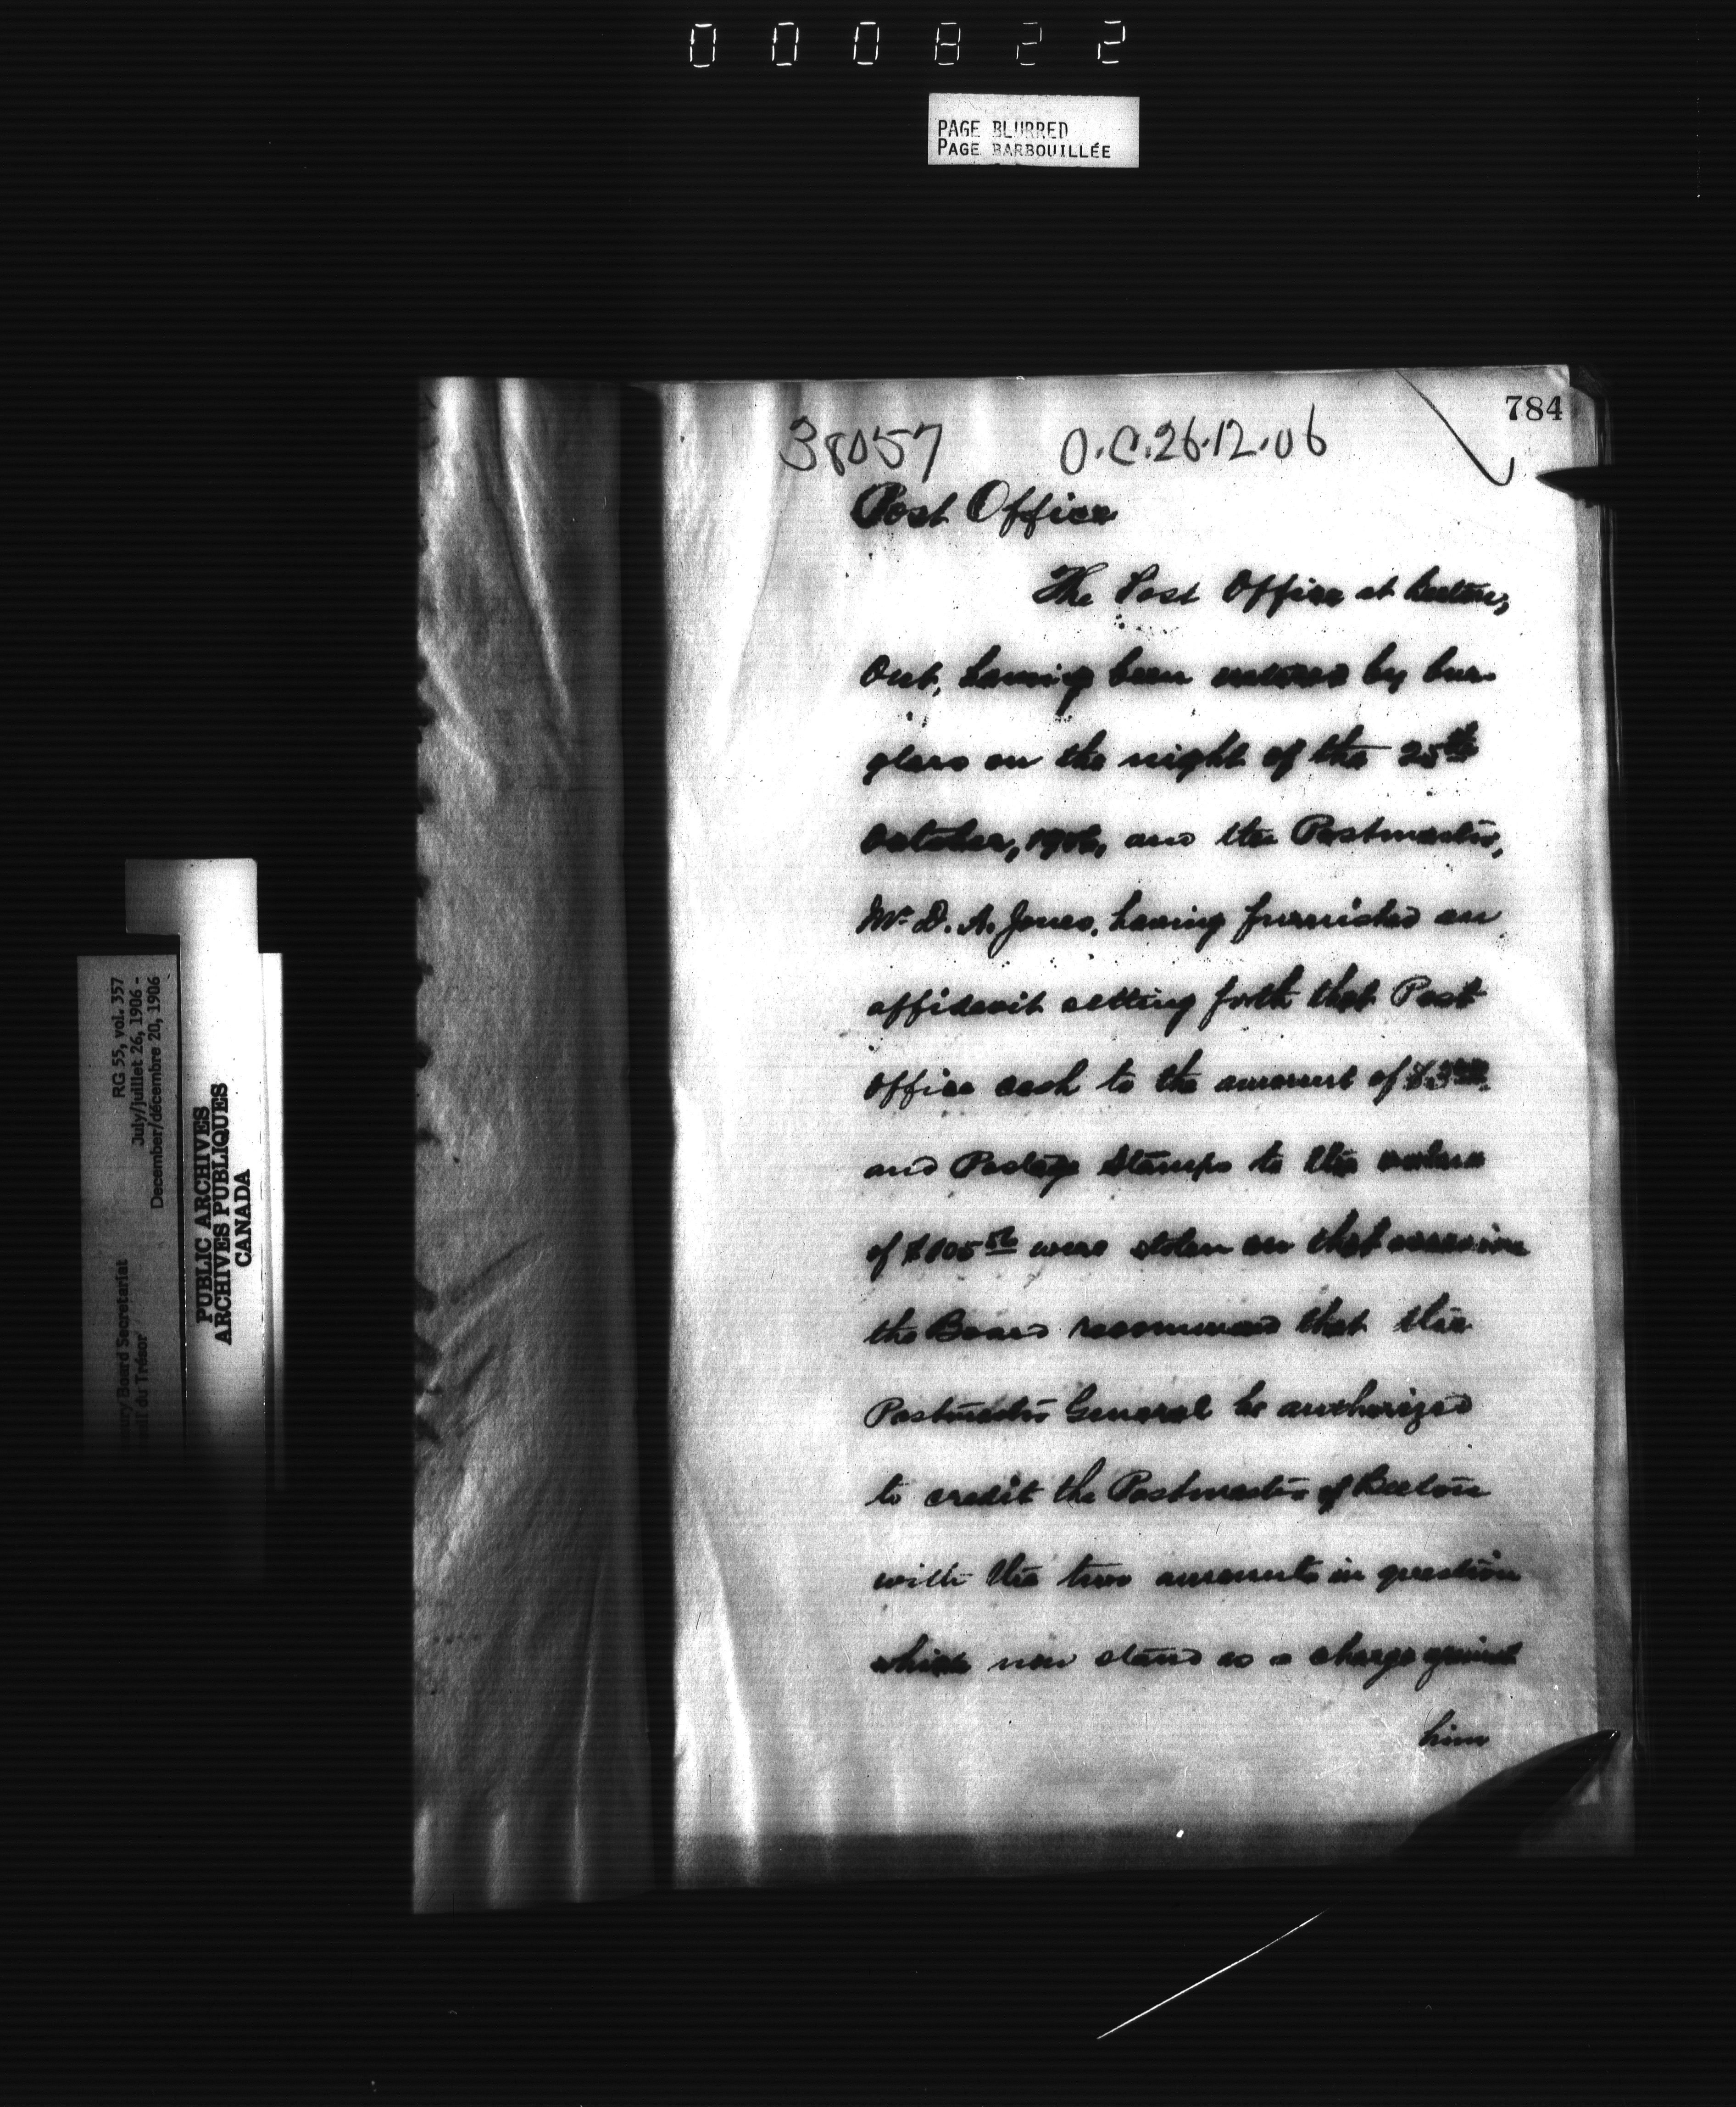 000822
PAGE BLURRED
PAGE BARBOUILLÉE
784
38057 O.C. 26.12.06
Post Office
The Post Office at Beeton,
Ont, having been entered by bur-
glars on the night of the 25th
October, 1906, and the Postmaster,
Mr. D. A. Jones, having furnished an
affidavit setting forth that Post
Office cash to the amount of
and Postage Stamps to the value
of $105 were stolen on that occasion
the Board recommend that the
Postmaster General be authorized
to credit the Postmaster of Beeton
with the two amounts in question
which now stand as a charge against
him
RG 55, vol. 357
July/juillet 26, 1906 -
December/décembre 20, 1906
ury Board Secretariat
du Trésor
PUBLIC ARCHIVES
ARCHIVES PUBLIQUES
CANADA